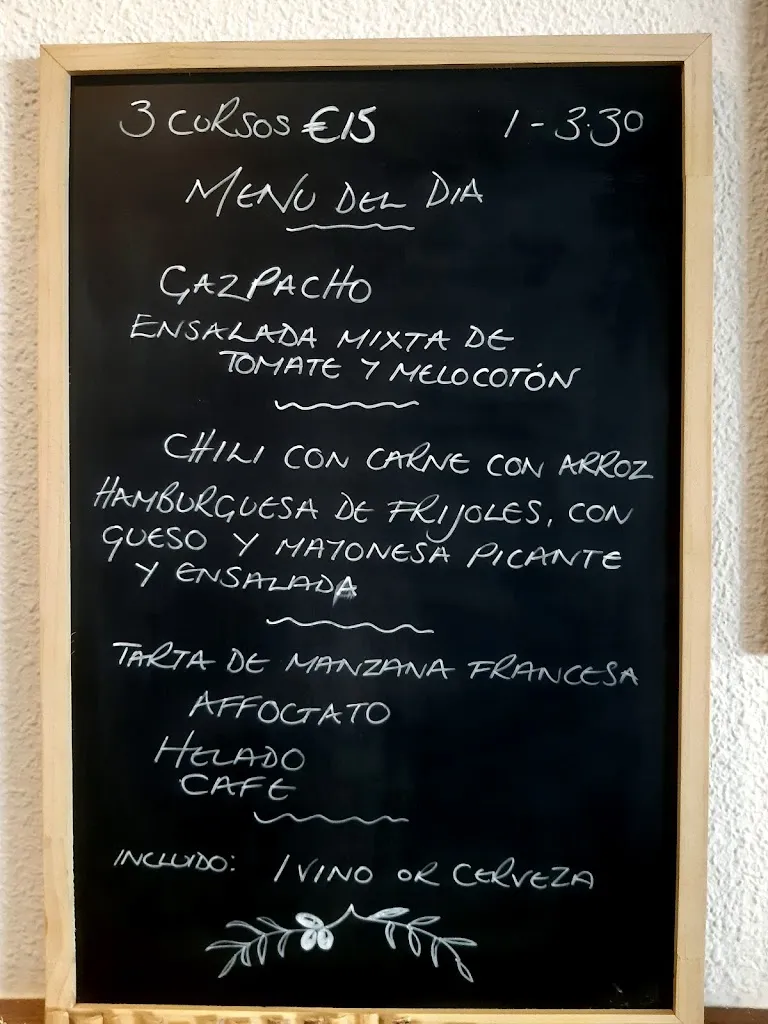 3 CURSOS €15 1 - 3.30
MENU DEL DIA
GAZPACHO
ENSALADA MIXTA DE
TOMATE Y MELOCOTÓN
CHILI CON CARNE CON ARROZ
HAMBURGUESA DE FRIJOLES, CON
QUESO Y MAYONESA PICANTE
Y ENSALADA
TARTA DE MANZANA FRANCESA
AFFOGATO
HELADO
CAFE
INCLUIDO: 1 VINO OR CERVEZA